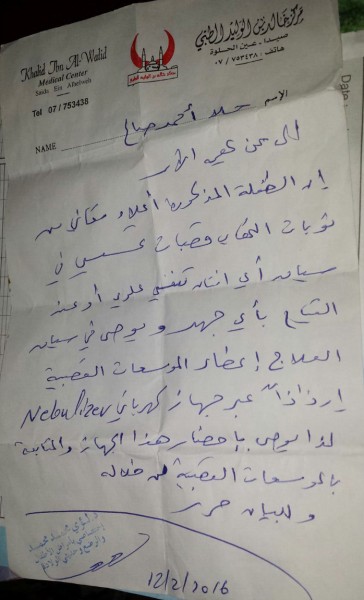 مركز خالد بن الوليد الطبي
صيدا - عين الحلوة
هاتف: ٧٥٣٤٣٨ / ٠٧
Khalid Ibn Al-Walid
Medical Center
Saida, Ein Alhelweh
Tel 07 / 753438
الإسم
NAME
أحمد صالح
الى من يهمه الأمر
إن الطفلة المذكورة أعلاه تعاني من
نوبات التهاب قصبات تحسسي في
سياق أي انتان تنفسي علوي أو عند
القيام بأي جهد ويوصى في سياق
العلاج إعطاء الموسعات القصبية
إرذاذاً عبر جهاز كهربائي Nebulizer
لذا يوصى بإحضار هذا الجهاز والمتابعة
بالموسعات القصبية من خلاله
وللبيان حرر
12/2/2016
Date :